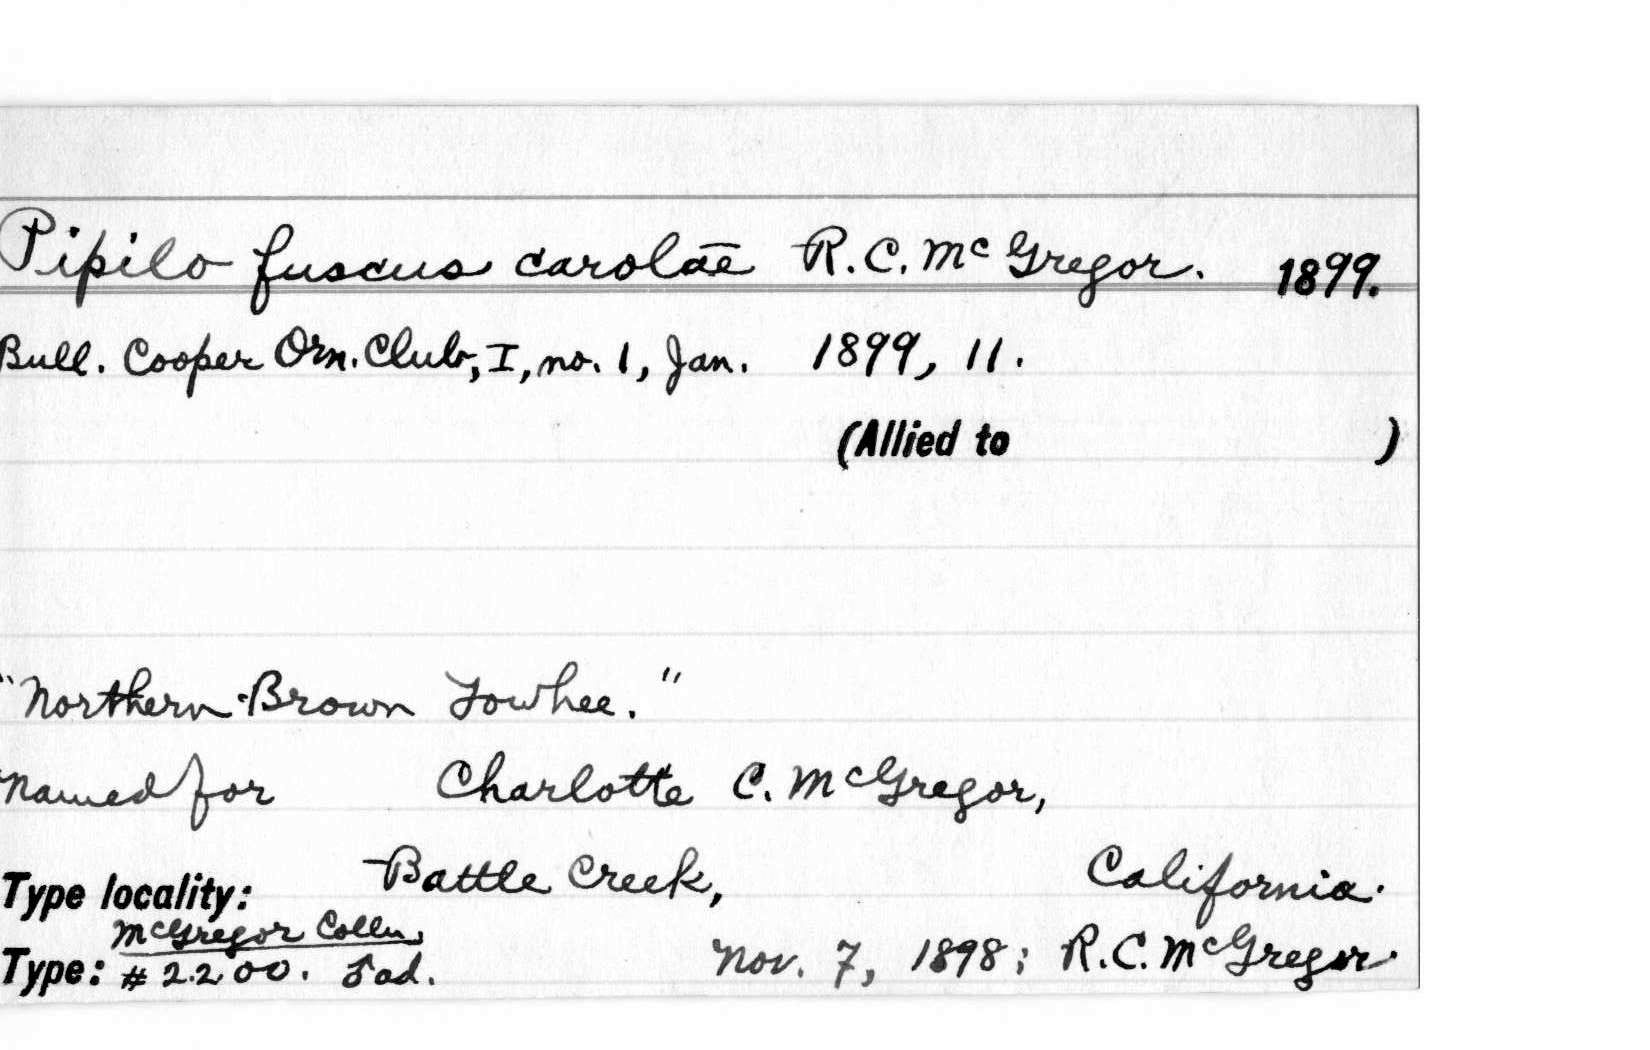 Pipilo fuscus carolae R.C. McGregor. 1899.
Bull. Cooper Orn. Club, I, no. 1, Jan. 1899, 11.
(Allied to )
"Northern Brown Towhee."
Named for Charlotte C. McGregor,
Type locality: Battle Creek, California.
McGregor Colln.
Type: #2200. ad. Nov. 7, 1898; R.C. McGregor.